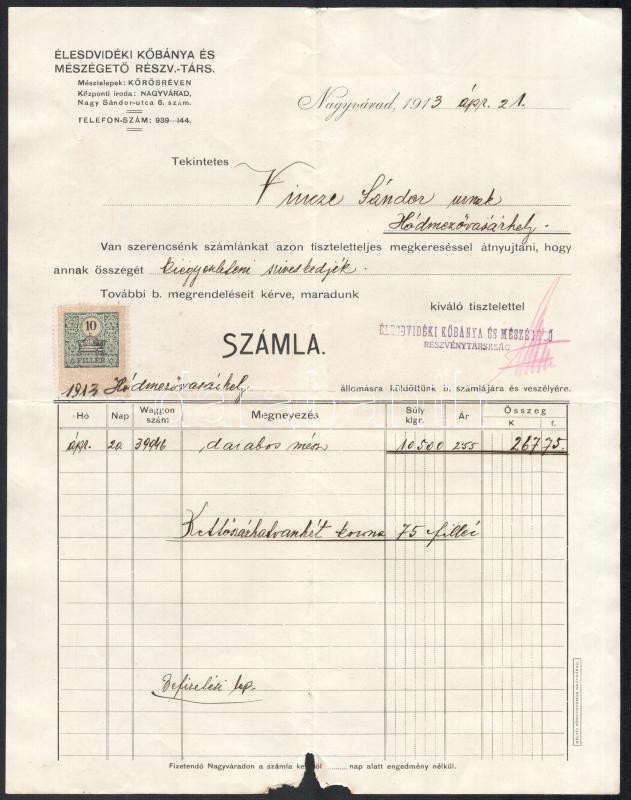 ÉLESDVIDÉKI KŐBÁNYA ÉS
MÉSZÉGETŐ RÉSZV.-TÁRS.
Mésztelepek: KŐRÖSRÉVEN
Központi iroda: NAGYVÁRAD,
Nagy Sándor-utca 6. szám.
TELEFON-SZÁM: 939—144.
Nagyvárad, 1913 ápr. 21.
Tekintetes
Vincze Sándor urnak
Hódmezővasárhely.
Van szerencsénk számlánkat azon tiszteletteljes megkereséssel átnyujtani, hogy
annak összegét kiegyenliteni sziveskedjék.
További b. megrendeléseit kérve, maradunk
kiváló tisztelettel
10
FILLÉR
SZÁMLA.
ÉLESDVIDÉKI KŐBÁNYA ÉS MÉSZÉGETŐ
RÉSZVÉNYTÁRSASÁG
1913 Hódmezővasárhely állomásra küldöttünk b. számlájára és veszélyére.
Hó Nap Waggon szám Megnevezés Súly klgr. Ár Összeg K f.
ápr. 20. 39946 darabos mész 10500 255 267 75.
Kettőszázhatvanhét korona 75 fillér
Befizelési lap.
Fizetendő Nagyváradon a számla kel től ........ nap alatt engedmény nélkül.